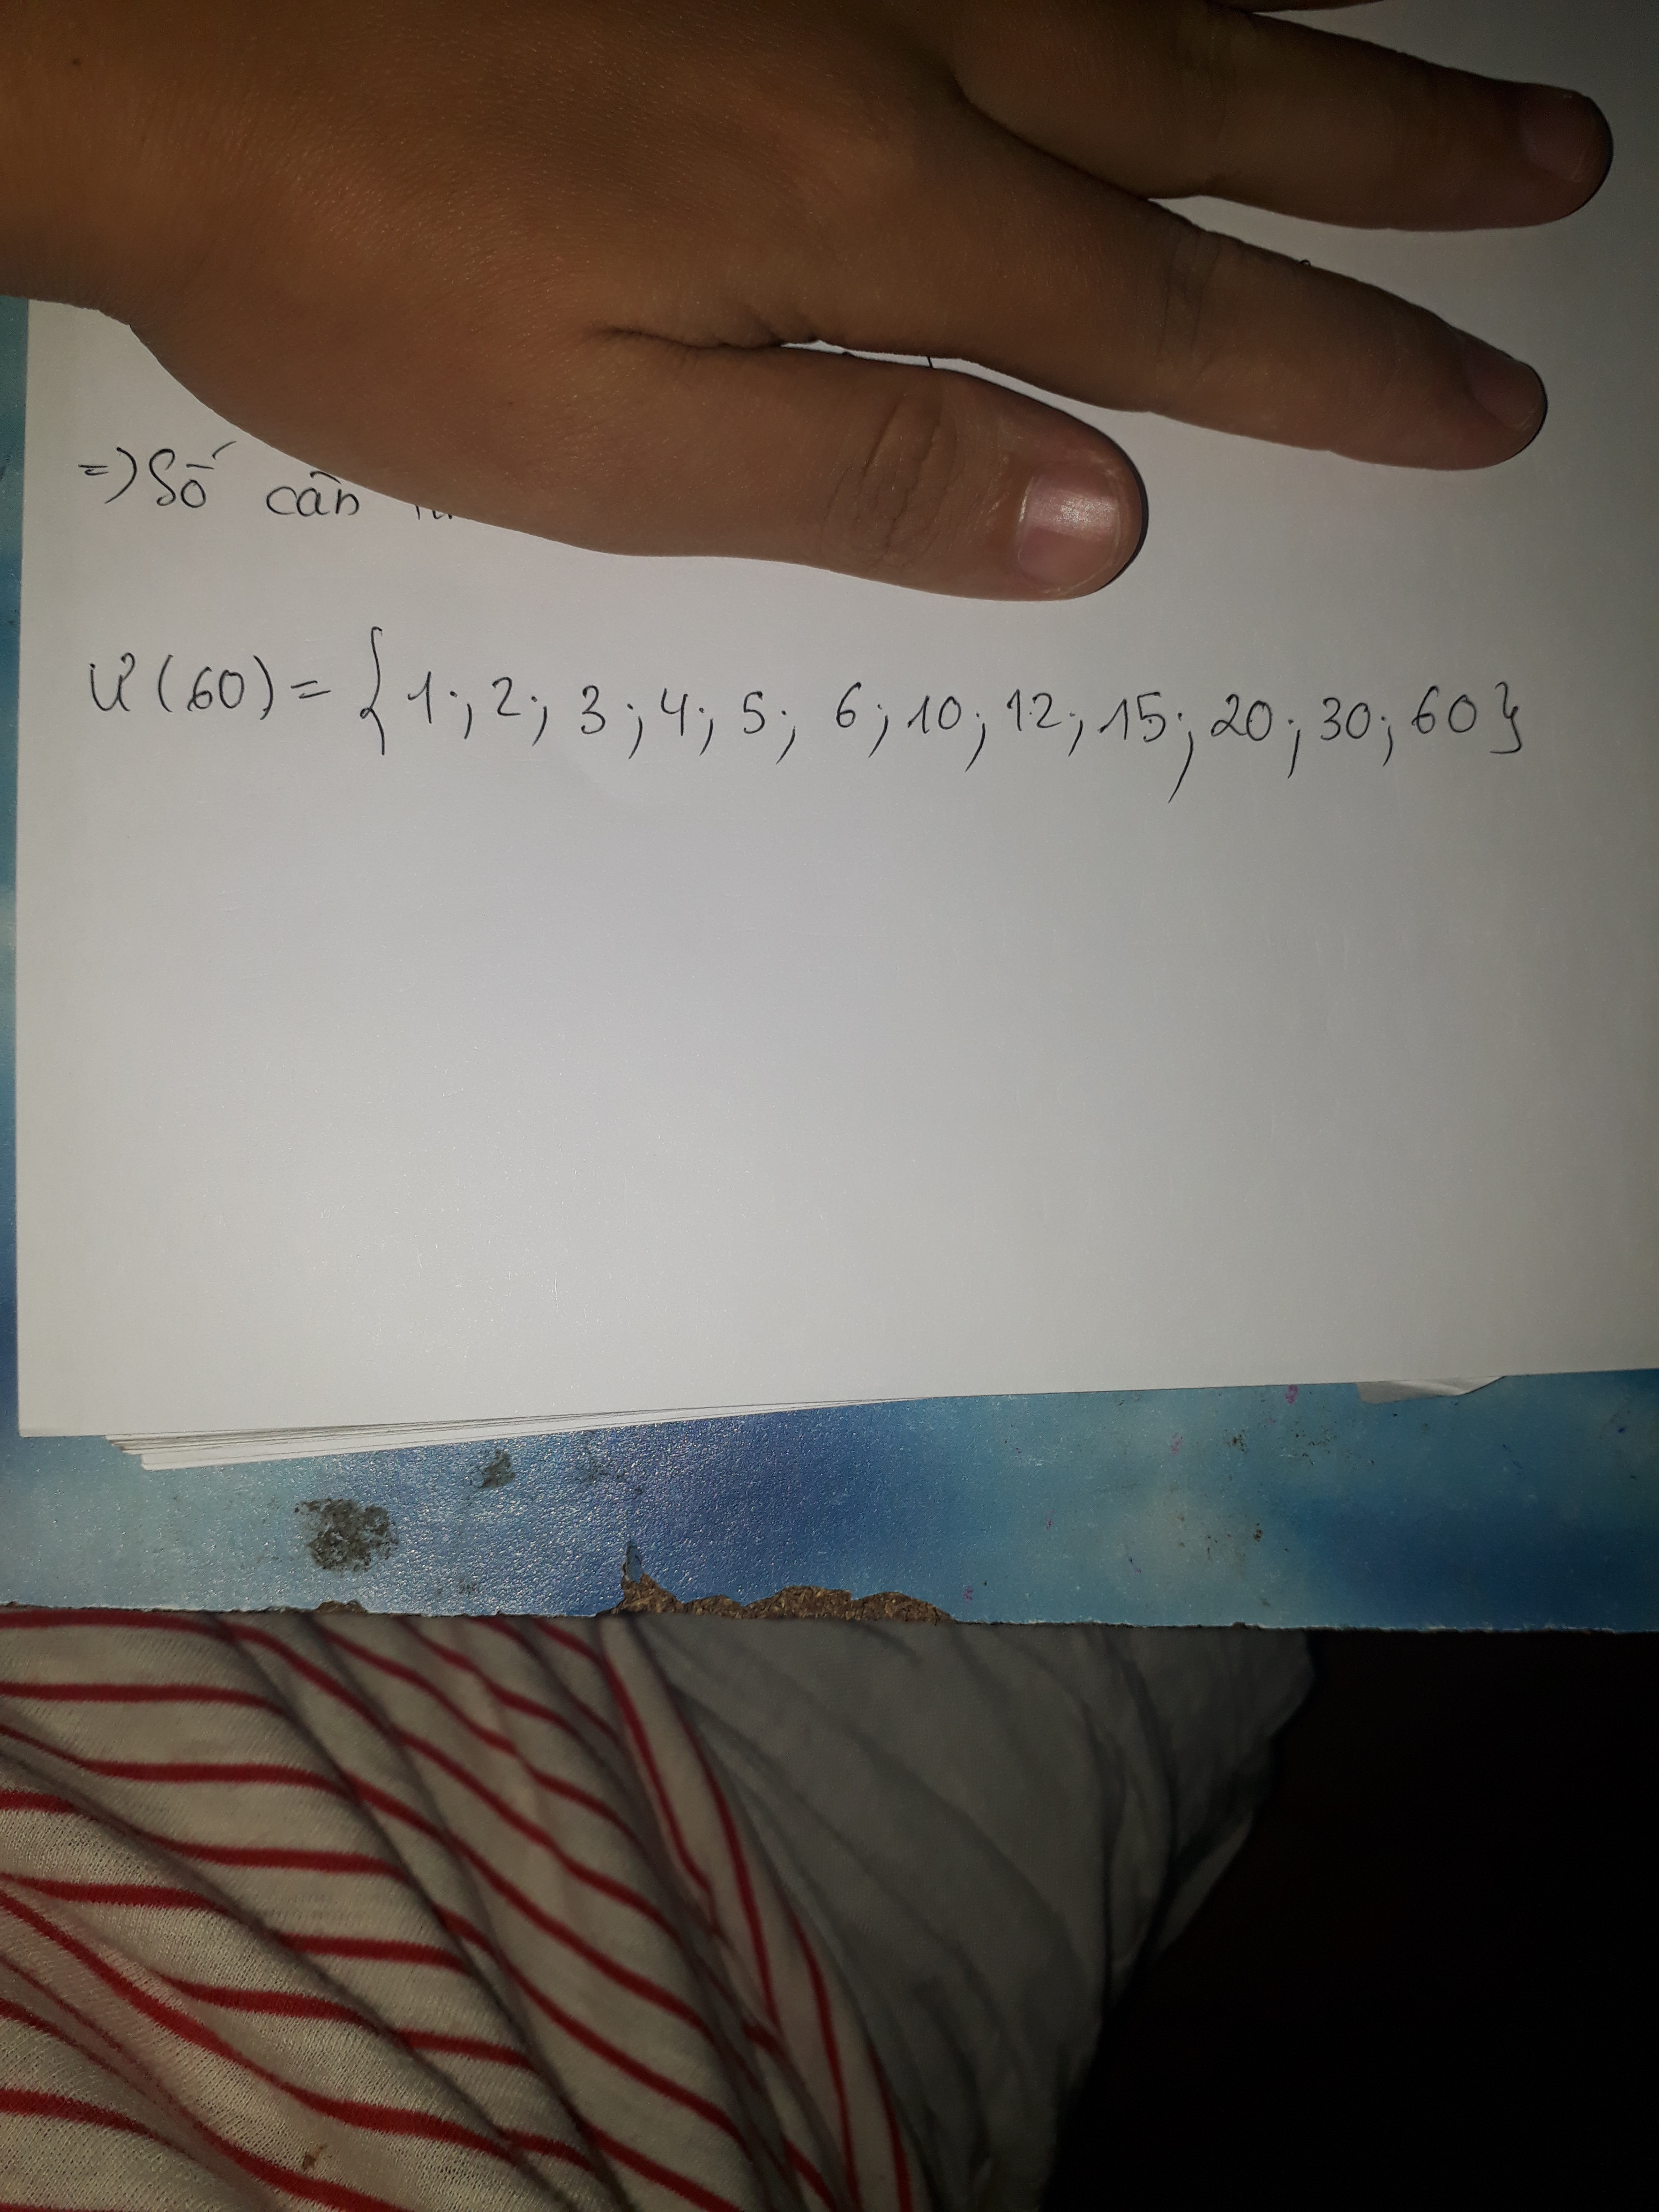 => Số cần
Ư(60) = {1; 2; 3; 4; 5; 6; 10; 12; 15; 20; 30; 60}